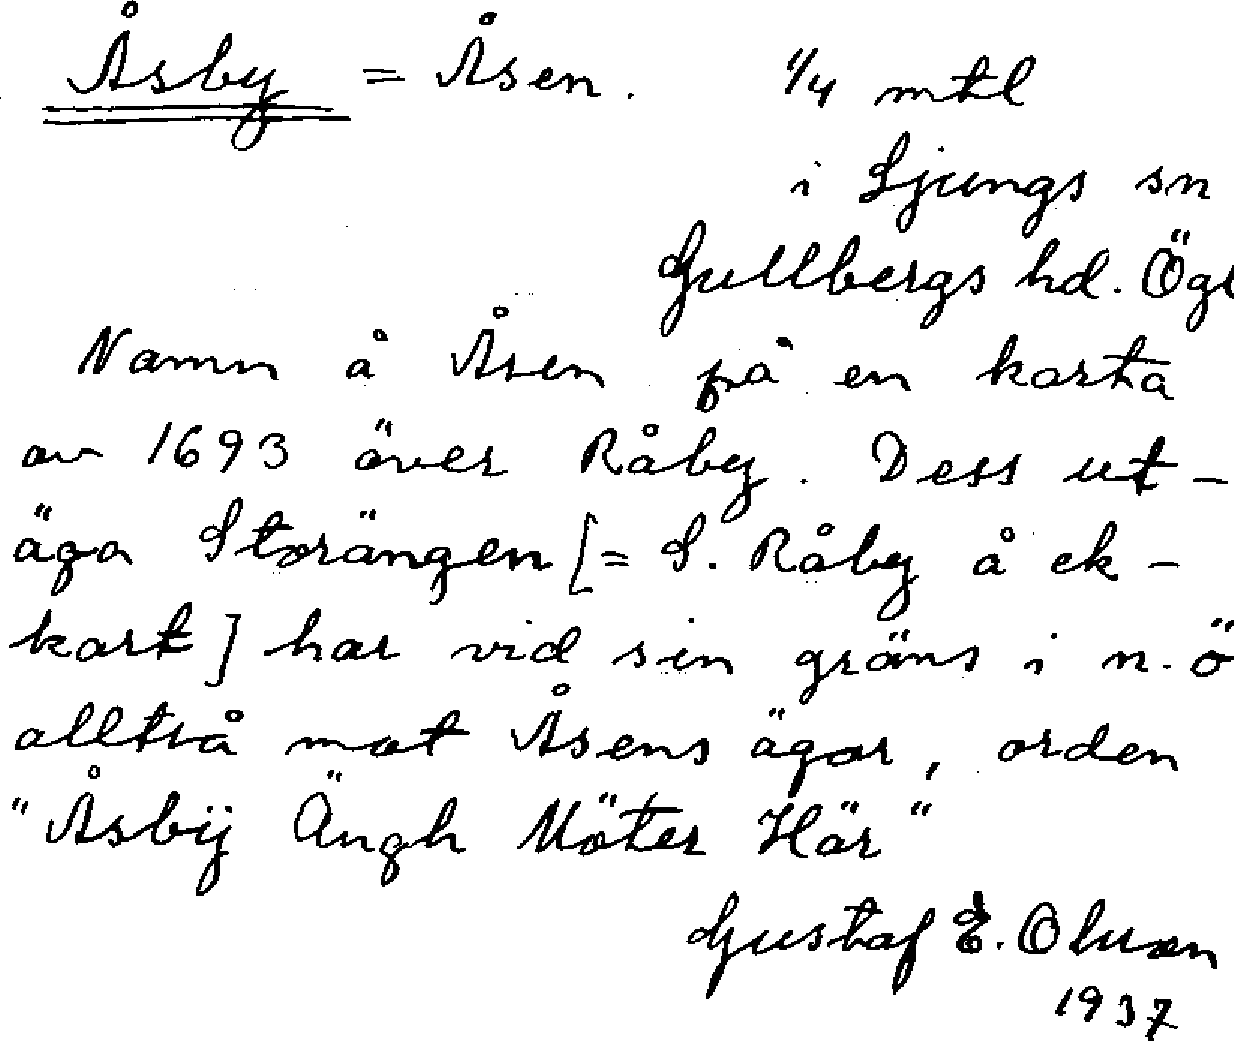 Åsby = Åsen. 1/4 mtl
i Ljungs sn
Gullbergs hd. Ögl
Namn å Åsen på en karta
av 1693 över Råby. Dess ut-
äga Storängen [= S. Råby å ek-
kart] har vid sin gräns i n.ö
alltså mot Åsens ägor, orden
"Åsbÿ Ängh Möter Här"
Gustaf E. Olsson
1937